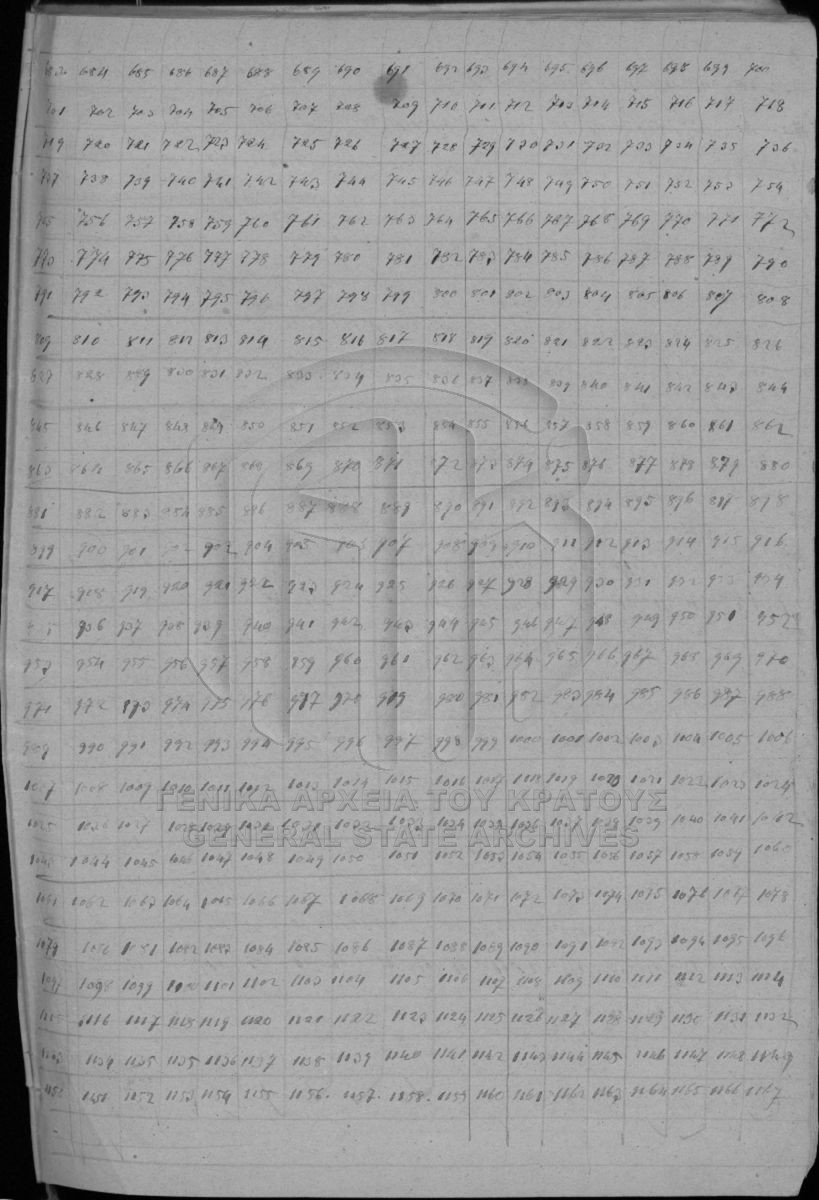 683 684 685 686 687 688 689 690 691 692 693 694 695 696 697 698 699 700
701 702 703 704 705 706 707 708 709 710 711 712 713 714 715 716 717 718
719 720 721 722 723 724 725 726 727 728 729 730 731 732 733 734 735 736
737 738 739 740 741 742 743 744 745 746 747 748 749 750 751 752 753 754
755 756 757 758 759 760 761 762 763 764 765 766 767 768 769 770 771 772
773 774 775 776 777 778 779 780 781 782 783 784 785 786 787 788 789 790
791 792 793 794 795 796 797 798 799 800 801 802 803 804 805 806 807 808
809 810 811 812 813 814 815 816 817 818 819 820 821 822 823 824 825 826
827 828 829 830 831 832 833 834 835 836 837 838 839 840 841 842 843 844
845 846 847 848 849 850 851 852 853 854 855 856 857 858 859 860 861 862
863 864 865 866 867 868 869 870 871 872 873 874 875 876 877 878 879 880
881 882 883 884 885 886 887 888 889 890 891 892 893 894 895 896 897 898
899 900 901 902 903 904 905 906 907 908 909 910 911 912 913 914 915 916
917 918 919 920 921 922 923 924 925 926 927 928 929 930 931 932 933 934
936 937 938 939 940 941 942 943 944 945 946 947 948 949 950 951 952
953 954 955 956 957 958 959 960 961 962 963 964 965 966 967 968 969 970
971 972 973 974 975 976 977 978 979 980 981 982 983 984 985 986 987 988
989 990 991 992 993 994 995 996 997 998 999 1000 1001 1002 1003 1004 1005 1006
1007 1008 1009 1010 1011 1012 1013 1014 1015 1016 1017 1018 1019 1020 1021 1022 1023 1024
ΓΕΝΙΚΑ ΑΡΧΕΙΑ ΤΟΥ ΚΡΑΤΟΥΣ
1025 1026 1027 1028 1029 1030 1031 1032 1033 1034 1035 1036 1037 1038 1039 1040 1041 1042
GENERAL STATE ARCHIVES
1043 1044 1045 1046 1047 1048 1049 1050 1051 1052 1053 1054 1055 1056 1057 1058 1059 1060
1061 1062 1063 1064 1065 1066 1067 1068 1069 1070 1071 1072 1073 1074 1075 1076 1077 1078
1079 1080 1081 1082 1083 1084 1085 1086 1087 1088 1089 1090 1091 1092 1093 1094 1095 1096
1097 1098 1099 1100 1101 1102 1103 1104 1105 1106 1107 1108 1109 1110 1111 1112 1113 1114
1115 1116 1117 1118 1119 1120 1121 1122 1123 1124 1125 1126 1127 1128 1129 1130 1131 1132
1133 1134 1135 1135 1136 1137 1138 1139 1140 1141 1142 1143 1144 1145 1146 1147 1148 1149
1150 1151 1152 1153 1154 1155 1156. 1157. 1158. 1159 1160 1161 1162 1163 1164 1165 1166 1167